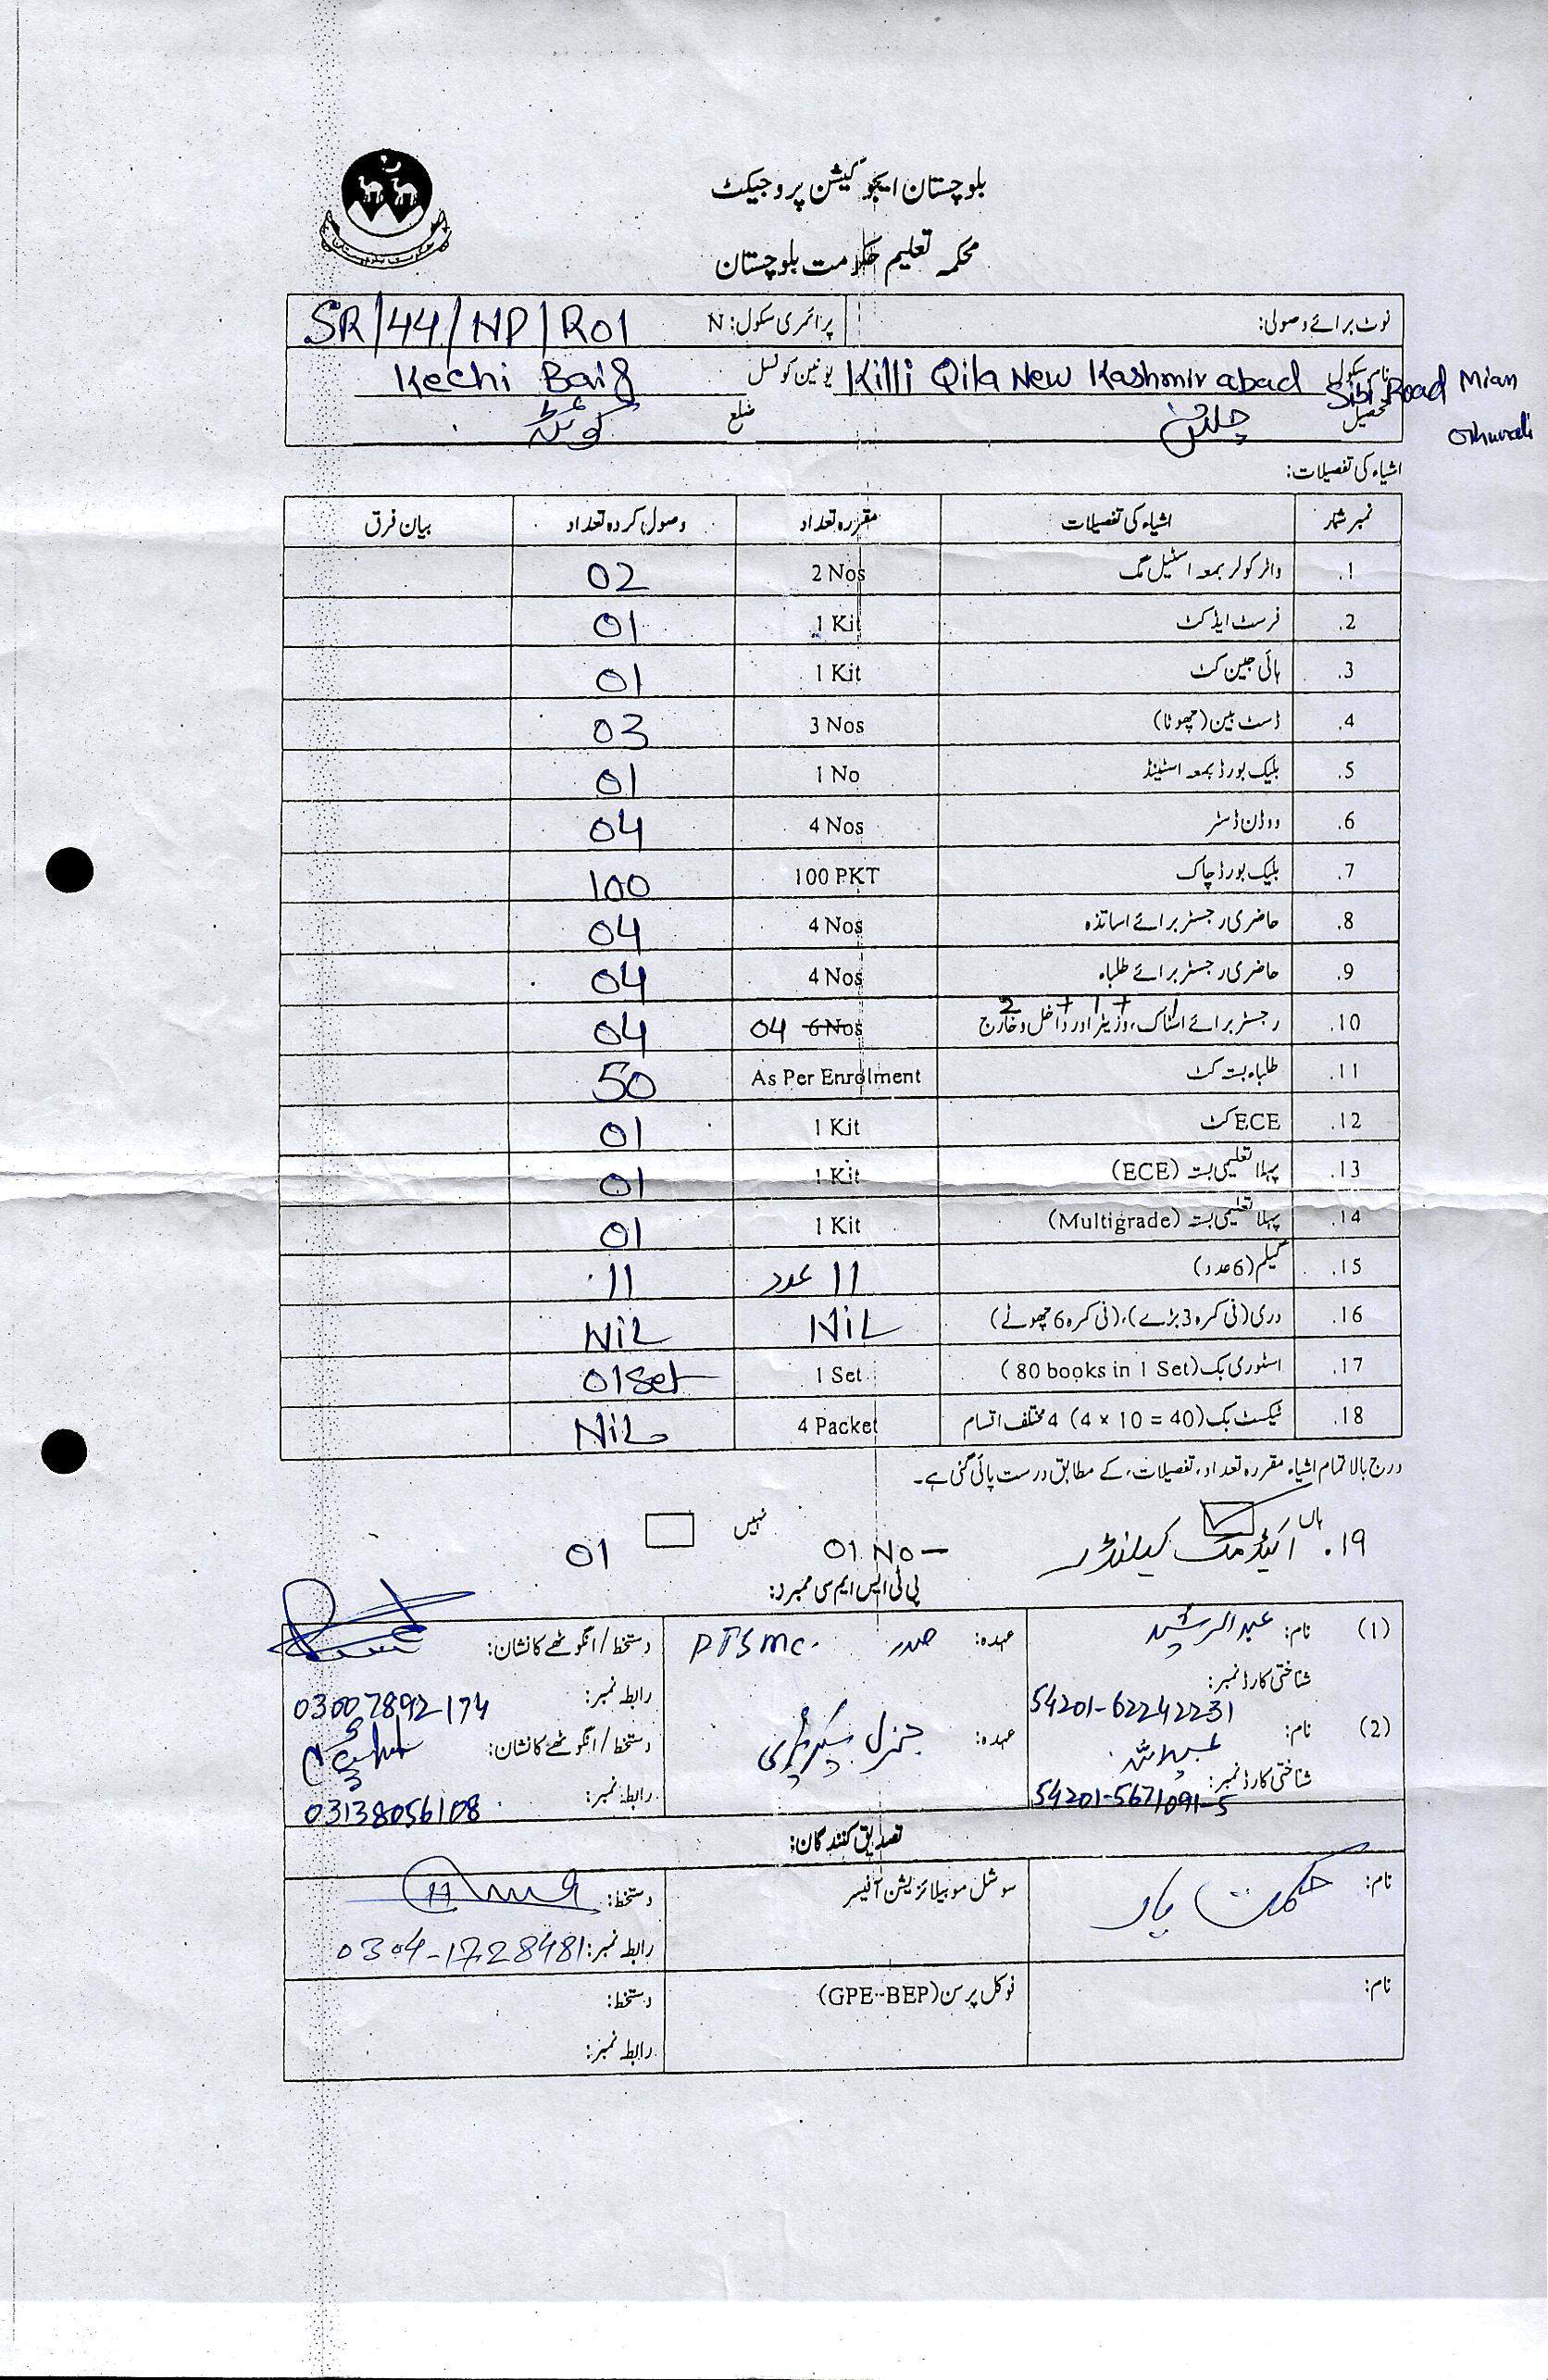 بلوچستان ایجوکیشن پروجیکٹ
محکمہ تعلیم حکومت بلوچستان
نوٹ برائے وصولی: پرائمری سکول: N SR/44/NP/R01
نام سکول Killi Qila New Kashmir abad Sibi Road Mian یونین کونسل Kechi Baig
تحصیل چلتن ضلع کوئٹہ
اشیاء کی تفصیلات:
نمبر شمار اشیاء کی تفصیلات مقررہ تعداد وصول کردہ تعداد بیان فرق
1. واٹر کولر بمعہ اسٹیل مگ 2 Nos 02
2. فرسٹ ایڈ کٹ 1 Kit 01
3. ہائی جین کٹ 1 Kit 01
4. ڈسٹ بین (چھوٹا) 3 Nos 03
5. بلیک بورڈ بمعہ اسٹینڈ 1 No 01
6. ووڈن ڈسٹر 4 Nos 04
7. بلیک بورڈ چاک 100 PKT 100
8. حاضری رجسٹر برائے اساتذہ 4 Nos 04
9. حاضری رجسٹر برائے طلباء 4 Nos 04
2 + 1 + 1
10. رجسٹر برائے اسٹاک، وزیٹر اور داخل و خارج 6 Nos 04 04
11. طلباء بستہ کٹ As Per Enrolment 50
12. ECE کٹ 1 Kit 01
13. پہلا تعلیمی بستہ (ECE) 1 Kit 01
14. پہلا تعلیمی بستہ (Multigrade) 1 Kit 01
15. گلیم (6 عدد) 11 عدد 11
16. دری (فی کمرہ 3 بڑے)، (فی کمرہ 6 چھوٹے) NiL NiL
17. اسٹوری بک (80 books in 1 Set) 1 Set 01 Set
18. ٹیکسٹ بک (4 × 10 = 40) 4 مختلف اقسام 4 Packet NiL
درج بالا تمام اشیاء مقررہ تعداد، تفصیلات، کے مطابق درست پائی گئی ہے۔
ہاں نہیں
19. اکیڈمک کیلنڈر 01 No 01
پی ٹی ایس ایم سی ممبرد:
(1) نام: عبدالرشید عہدہ: صدر PTSMC. دستخط/انگوٹھے کا نشان:
شناختی کارڈ نمبر: 54201-62242231 رابطہ نمبر: 03007892174
(2) نام: عہدہ: جنرل سیکرٹری دستخط/انگوٹھے کا نشان:
شناختی کارڈ نمبر: 54201-5671091-5 رابطہ نمبر: 03138056108
تصدیق کنندگان:
نام: حکمت یار سوشل موبیلائزیشن آفیسر دستخط:
رابطہ نمبر: 0304-1728481
نام: فوکل پرسن (GPE-BEP) دستخط:
رابطہ نمبر: